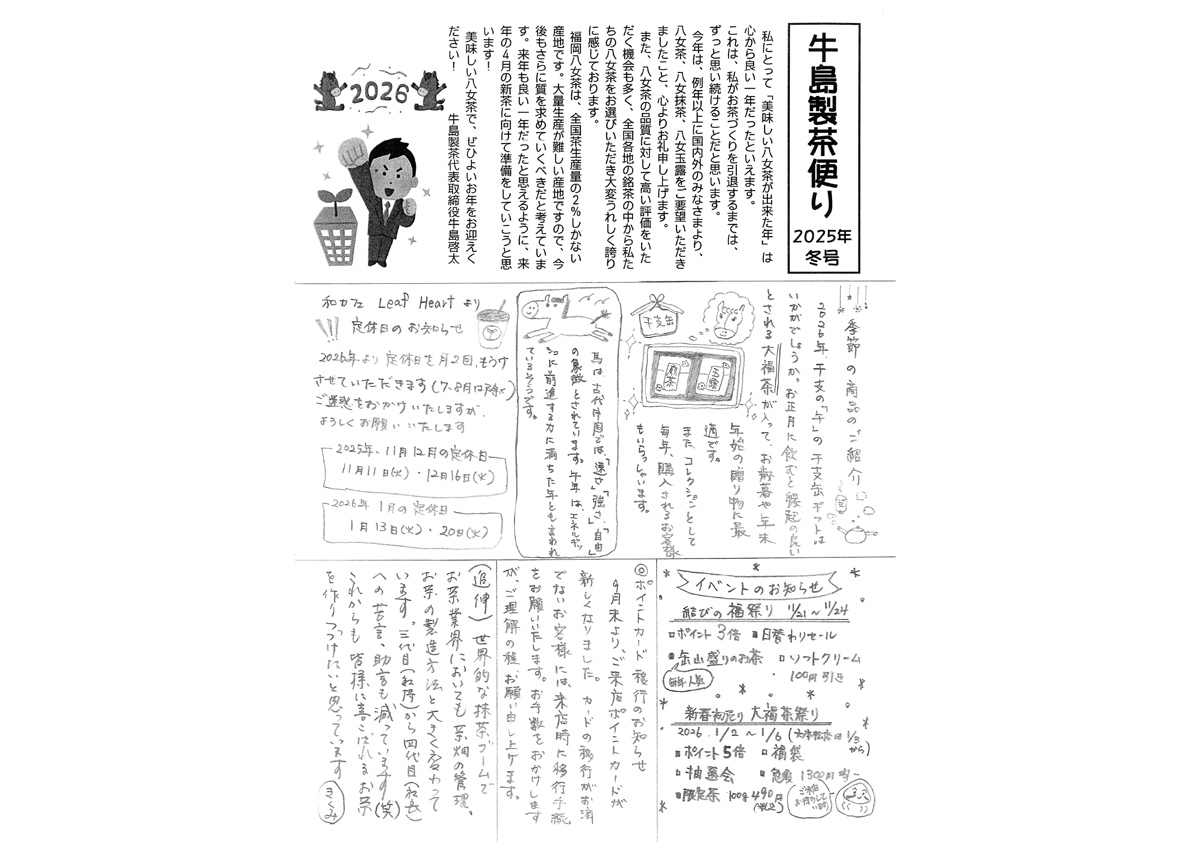 牛島製茶便り
2025年
冬号
私にとって「美味しい八女茶が出来た年」は
心から良い一年だったといえます。
これは、私がお茶づくりを引退するまでは、
ずっと思い続けることだと思います。
今年は、例年以上に国内外のみなさまより、
八女茶、八女抹茶、八女玉露をご要望いただき
ましたこと、心よりお礼申し上げます。
また、八女茶の品質に対して高い評価をいた
だく機会も多く、全国各地の銘茶の中から私た
ちの八女茶をお選びいただき大変うれしく誇り
に感じております。
福岡八女茶は、全国茶生産量の2%しかない
産地です。大量生産が難しい産地ですので、今
後もさらに質を求めていくべきだと考えていま
す。来年も良い一年だったと思えるように、来
年の4月の新茶に向けて準備をしていこうと思
います!
美味しい八女茶で、ぜひよいお年をお迎えく
ださい!
牛島製茶代表取締役牛島啓太
2026
季節の商品のご紹介
2026年、干支の「午」の干支缶ギフトは
いかがでしょうか。お正月に飲むと縁起の良い
とされる大福茶が入って、お歳暮や年末
年始の贈り物に最
適です。
また、コレクションとして
毎年、購入されるお客様
もいらっしゃいます。
干支缶
煎茶
玉露
馬は、古代中国では、「速さ」「強さ」「自由」
の象徴とされています。午年は、エネルギッ
シュに前進する力に満ちた年とも言われ
ているそうです。
和カフェ Leaf Heart より
定休日のお知らせ
2026年より定休日を月2回、もうけ
させていただきます(7、8月は除く)
ご迷惑をおかけいたしますが、
よろしくお願いいたします
2025年、11月12月の定休日
11月11日(火)・12月16日(火)
2026年 1月の定休日
1月13日(火)・20日(火)
イベントのお知らせ
結びの福祭り 11/21〜11/24
ポイント3倍 日替わりセール
缶山盛りのお茶 ソフトクリーム
毎年人気
100円引き
新春初売り 大福茶祭り
2026. 1/2〜1/6 (六本松店は1/3から)
ポイント5倍 福袋
抽選会 急須 1300円均一
限定茶 100g 490円(税込)
ご来店お待ちしています
◎ポイントカード移行のお知らせ
9月末より、ご来店ポイントカードが
新しくなりました。カードの移行がお済
でないお客様には、来店時に移行手続
をお願いいたします。お手数をおかけします
が、ご理解の程、お願い申し上げます。
(追伸)世界的な抹茶ブームで
お茶業界においても茶畑の管理、
お茶の製造方法と大きく変わって
います。三代目(和男)から四代目(社長)
への苦言、助言も減っています(笑)
これからも皆様に喜こばれるお茶
を作りつづけたいと思っています
きくみ